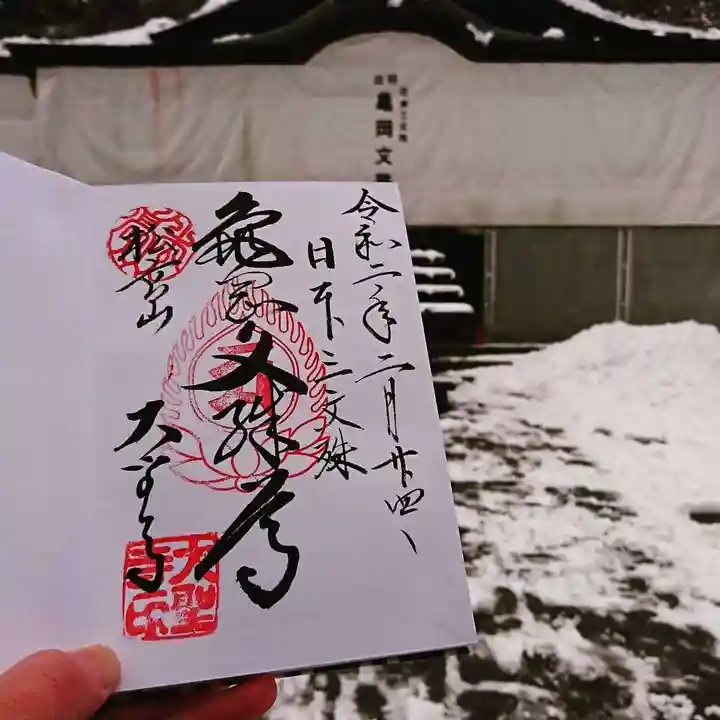 亀岡文
令和二年二月廿四日
日本三文殊
亀岡文殊尊
松高山
大聖寺
大聖
寺印